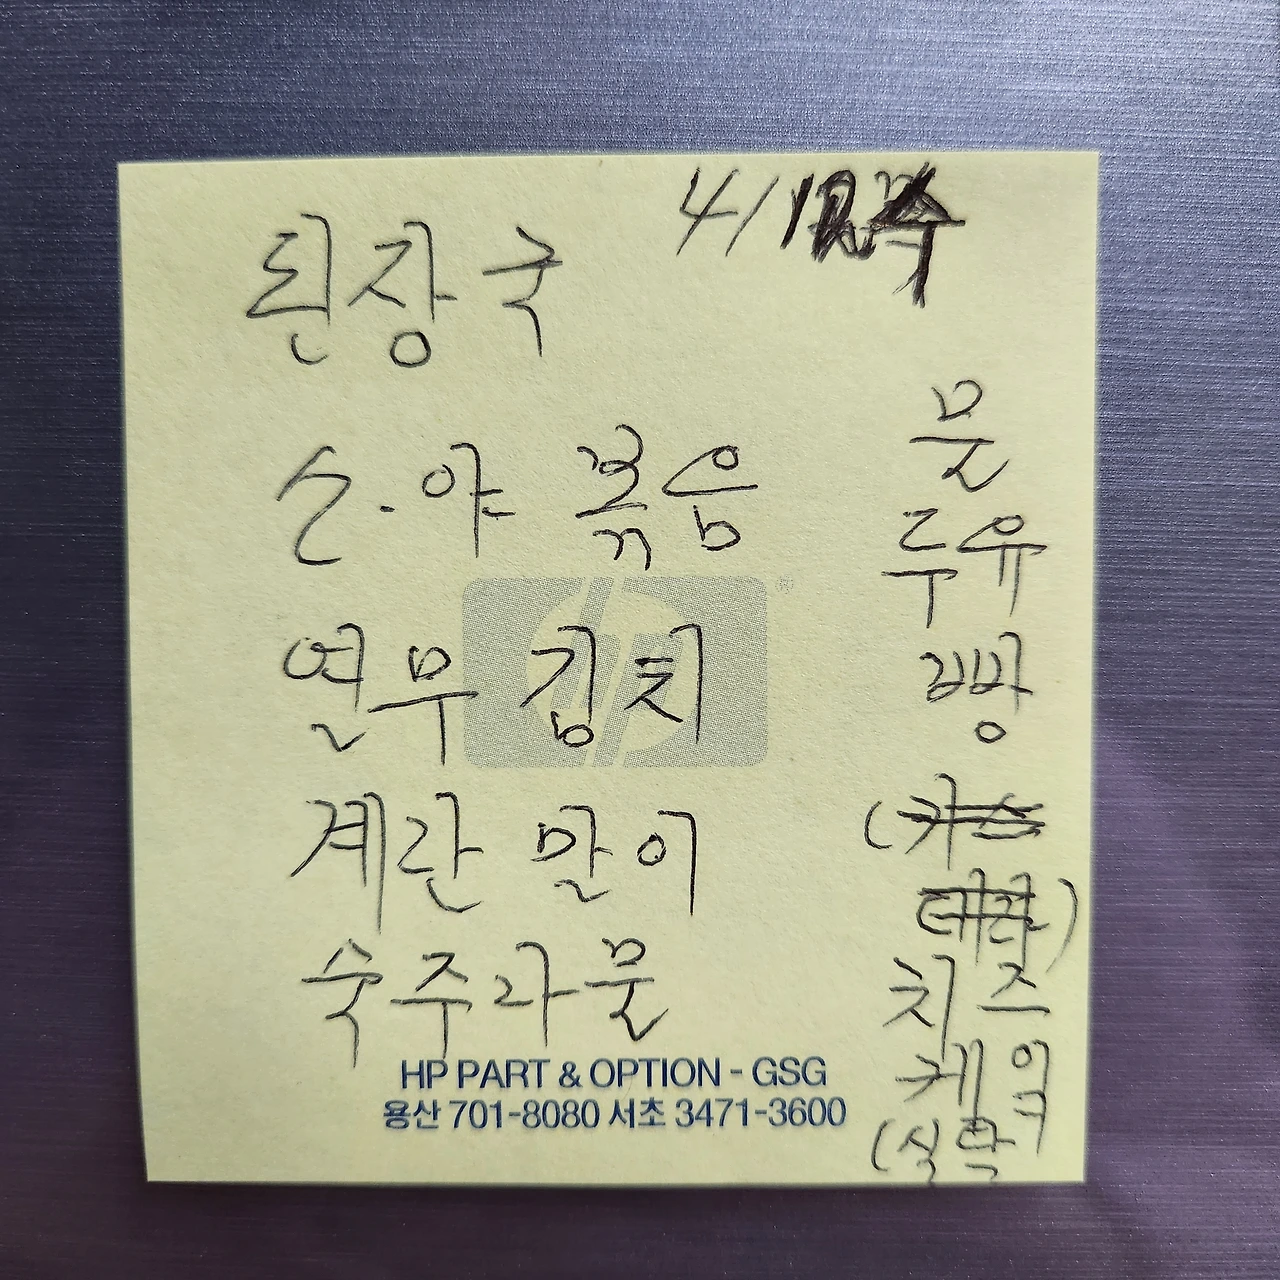 4/12 수
된장국
소.야 볶음
열무 김치
계란 말이
숙주나물
물
두유
빵
(카스
테라)
치즈
케잌
(식탁
hp
HP PART & OPTION - GSG
용산 701-8080 서초 3471-3600